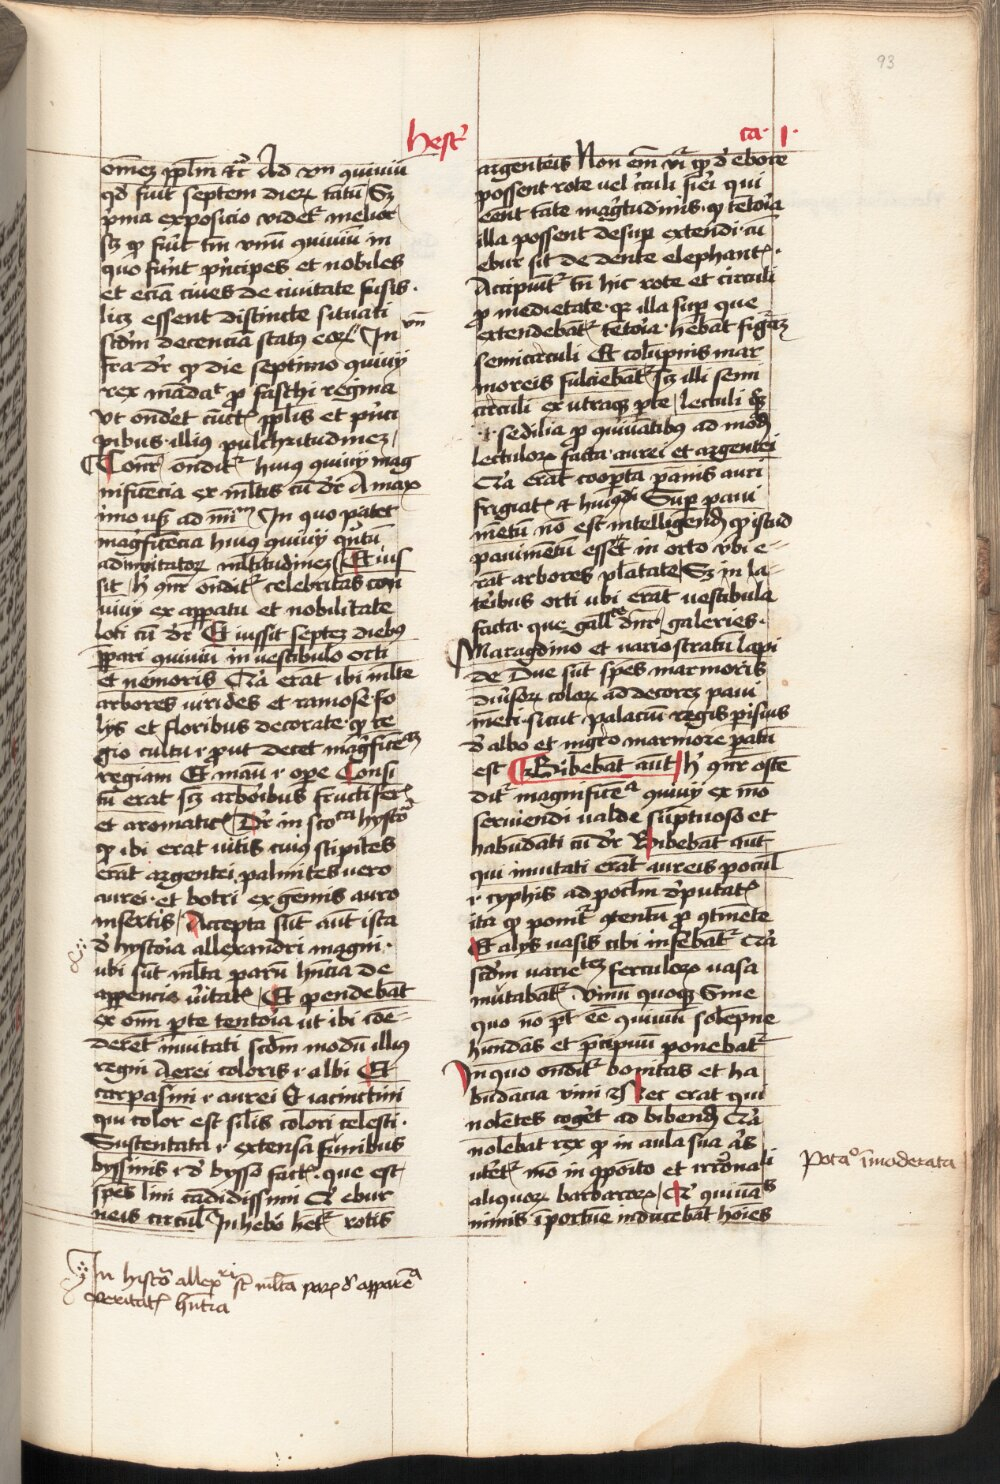 93
hest᷑
ca. 1.
om̄ez pp̄lm ꝛc᷑ Ad vn̄ ꝯuiuiū
qd̛ fuit septem dierꝝ tātū Sꝫ
p̄ma exposicio videt᷑ melior
sꝫ ꝙ fūit tm̄ vnū ꝯuiuiū in
quo fūnt p̄ncipes et nobiles
et eciā ciues de ciuitate susis.
licꝫ essent distincte situati
scd̄m decenciā status eorꝝ In
vn̄
fra dr̄ ꝙ die septimo ꝯuiuij
rex mādat ꝓ fasthi regina
vt ondēt cūct᷑ pp̄lis et p̄nci
pibus illius pulchritudinez
Con᷑ ondit᷑ huius ꝯuiuij mag
nificencia ex ml̄tis cū dr̄ A maxo
imo usꝫ ad mī In quo patet
mag̅ficēcia huius ꝯuiuij q̄ntū
ad inuitatorꝝ ml̄titudinez Et ius
sit h̛ ꝯn̄r ondit᷑ celebritas con
uiuij ex appatu et nobilitate
loci cū dr̄ Et iussit septez diebus
p̄pari ꝯuiuiū in vestibulo orti
et nemoris Q̄a erat ibi ml̄te
arbores virides et ramose fo
lijs et floribus decorate ꝙ re
gio cultu ꝛ ꝓut decet mag̅ficēꝫ
regiam Et manu ꝛ ope Consi
tū erat sꝫ arboribus fructifer᷑
et aromatic᷑ Dr̄ in sco᷑ca hysto᷑
ꝙ ibi erat vitis cuius stipites
erāt argentei palmites vero
aurei et botri ex gēmis auro
insertis Accepta sūt aut̄ ista
d̛ hystoīa allexandri magni
ubi sūt ml̄ta parū hn̄cia de
appēncia v̄itat᷑ Et pendebāt
ex om̄i pte tentoīa ut ibi ꝛde
deret inuitati scd̄m modū illius
regni Aerei coloris ꝛ albi Et
carpasini ꝛ aurei Et iacinctini
qui color est sil̄is colori celesti.
Sustentata ꝛ extensa funibus
byssinis ꝛ d̛ bysso fact᷑. que est
spēs lini cādidissimi Q̄ ebur
neis circul̄ In hebō het᷑ rotis
argenteis Non em̄ vr̄ ꝙ d̛ ebore
possent rote uel ꝛculi fieri qui
eent tāte mag̅tudinis ꝙ tētoīa
illa possent desup extendi cū
ebur sit de dente elephant᷑.
Accipiūt᷑ tn̄ hic rote et circuli
ꝓ medietate qꝛ illa sup que
extendebāt᷑ tētoīa hēbāt figurā
semicirculi Et colūpnis mar
moreis fulciebāt᷑ sꝫ illi semi
circuli ex utraqꝫ pte lectuli
.i. sedilia ꝓ ꝯuiuātibus ad modū
lectulorꝝ facta aurei et argentei
Q̄a erāt coopta pānis auri
frigiat᷑ ꝛ huiꝰmodi Sup paui
mētum nō est intelligend̄ ꝙ istud
pauimētū esset in orto vbi e-
rāt arbores plātate Sꝫ in la-
teribus orti ubi erāt vestibula
facta que gall᷑ce dn̄r galeries.
Maragdino et vario stratū lapi
de Due sūt spēs marmoris
diūsorꝝ colorꝝ ad decorez paui
mēti sicut palaciū regis parisius
d̛ albo et nigro marmore patū
est Bibebāt aut̄ h̛ ꝯn̄r oste
dit᷑ magnificēᵃ ꝯuiuij ex mo
seruiendi valde sūptuoso et
habūdāti cū dr̄ Bibebāt aut̄
qui inuitati erāt aureis pocul̄
ꝛ cyphis ad pocl̄m dputat᷑
ita ꝙ ponit᷑ ꝯtentū ꝓ ꝯtinēte
Et alijs uasis cibi inferebāt᷑ Q̄a
scd̄m varietez ferculorꝝ vasa
mutabāt᷑. Vinū quoqꝫ Sine
quo nō pt̄ ēē ꝯuiuiū solēpne
hūdās et p̄cipuū ponebat᷑
In quo ondit᷑ bonitas et ha
būdācia vini Nec erat qui
nolētes cogēt ad bibend̄ Q̄a
nolebat rex ꝙ in aula sua al̄s
utēt᷑ mō inꝓpoīto et irrōnali
aliquorꝝ barbarorꝝ Q̄ ꝯuiuās
nimis īportūe inducebāt hoīes
pota᷑ īmoderata
In histō allexʳⁱ st̄ ml̄ta parꝝ d̛ apparēᵃ
veritat᷑ hn̄tia